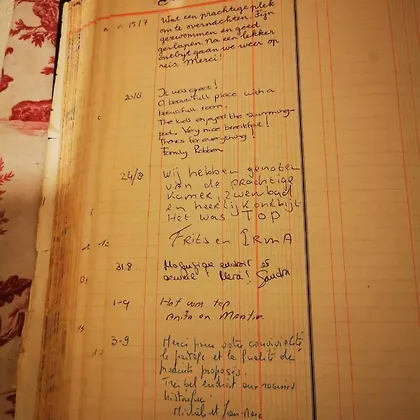 15|7 Wat een prachtige plek
om te overnachten. Fijn
gezwommen en goed
geslapen. Na een lekker
ontbijt gaan we weer op
reis. Merci!
20/8 It was great!
A beautifull place with a
beautifull room.
The kids enjoyed the swimming-
pool. Very nice breakfast!
Thanks for everything!
Family
24/8 Wij hebben genoten
van de prachtige
kamer, zwembad
en heerlijk ontbijt
Het was TOP
Frits en Irma
31.8 Magnifique endroit et
Merci! Sandra
1-9 Het was top
Anita en
3-9 Merci pour votre convivialité,
le partage et la qualité des
produits proposés.
Très bel endroit aux racines
historique.
Michèle et Jean-Marc